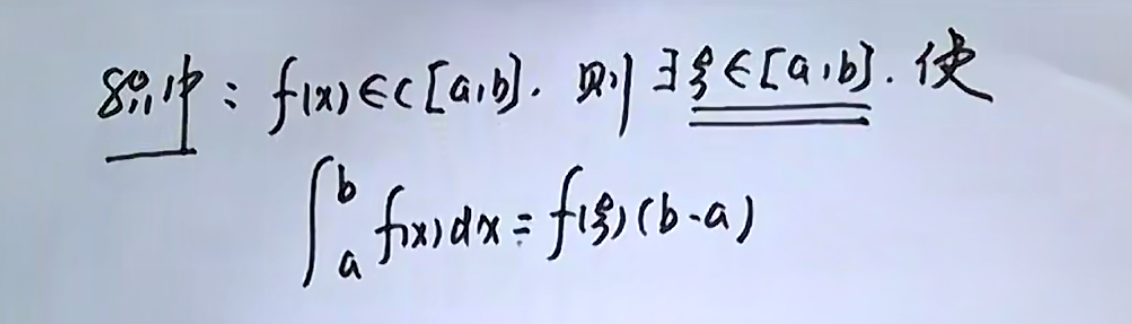 积中：f(x)∈C[a,b]. 则∃ξ∈[a,b]. 使
∫_a^b f(x)dx=f(ξ)(b-a)